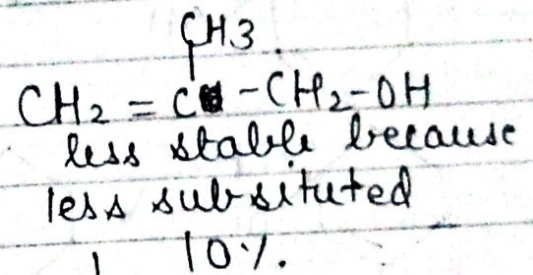 CH3
CH2 = C - CH2-OH
less stable because
less subsituted
10%.